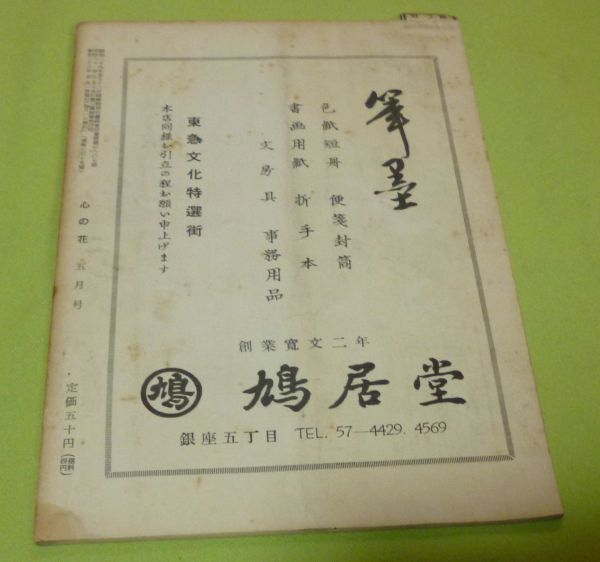 筆墨
色紙短冊 便箋封筒
書画用紙 折手本
文房具 事務用品
東急文化特選街
本店同様お引立の程お願い申上げます
創業寛文二年
鳩 鳩居堂
銀座五丁目 TEL. 57-4429. 4569
心の花 五月号
定価五十円